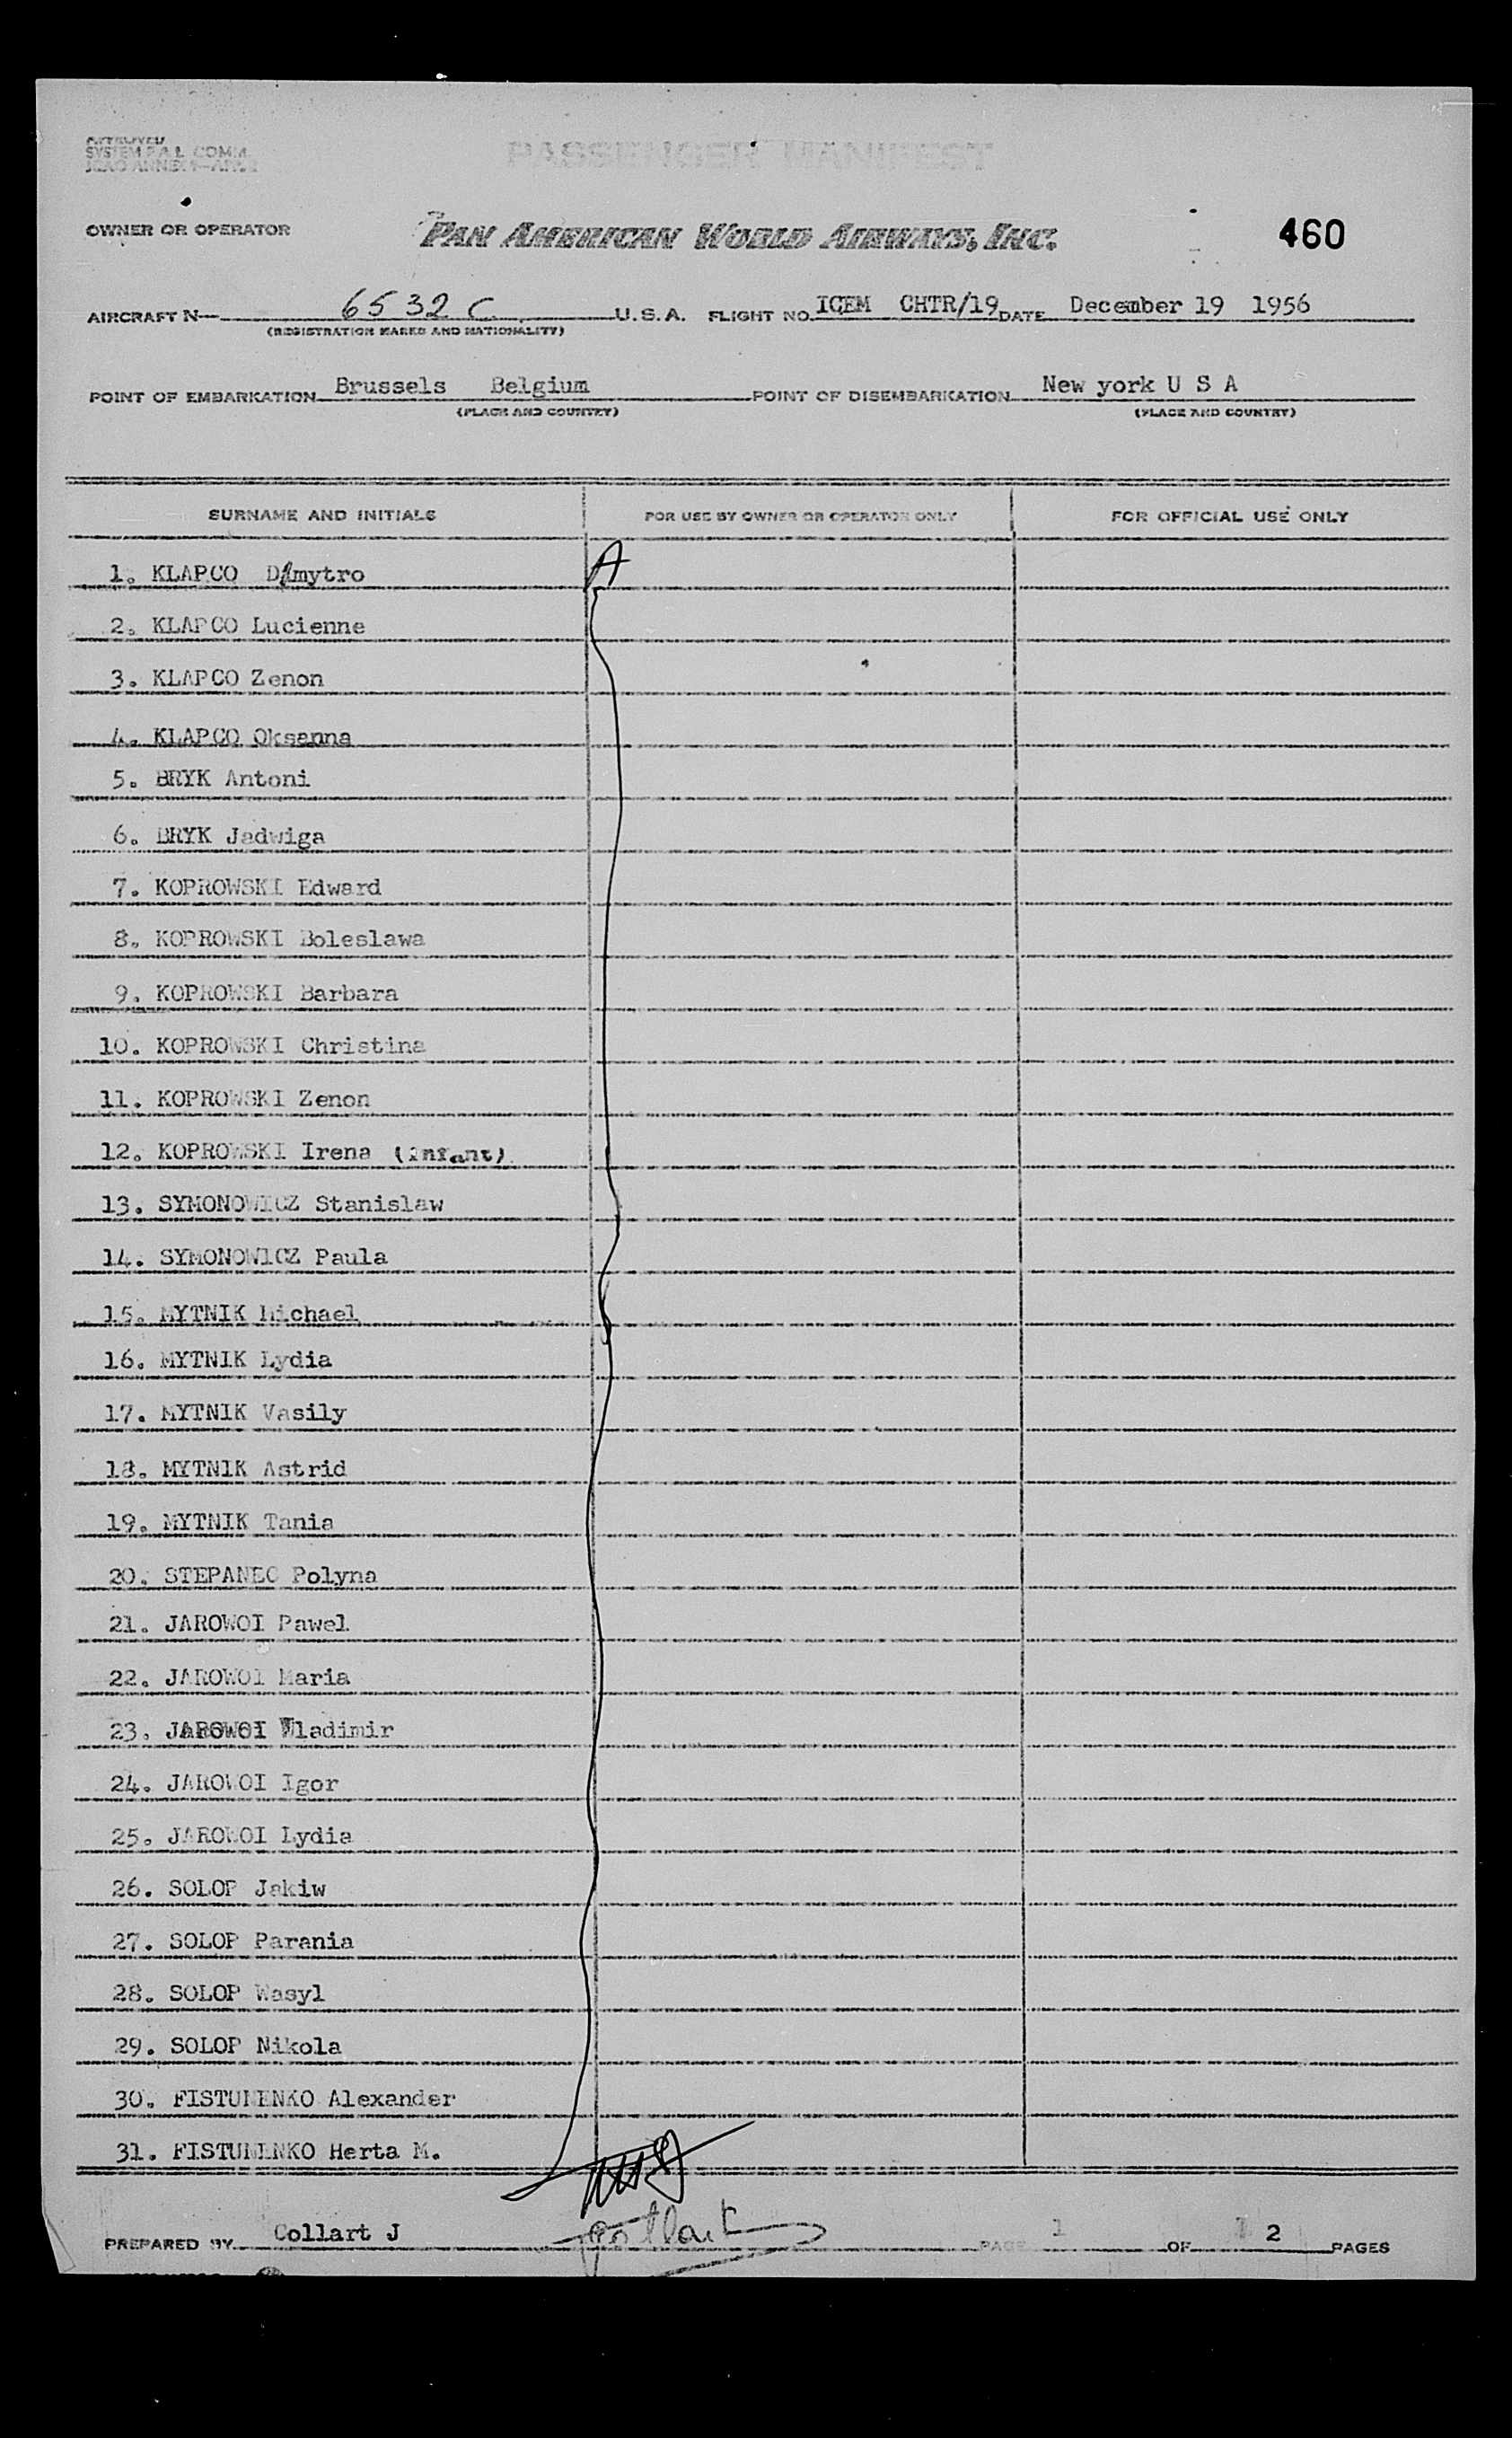 APPROVED
SYSTEM P.A.L. COMM.
PASSENGER MANIFEST
OWNER OR OPERATOR PAN AMERICAN WORLD AIRWAYS, INC. 460
AIRCRAFT N— 6532C U.S.A. FLIGHT NO. ICEM CHTR/19 DATE December 19 1956
(REGISTRATION MARKS AND NATIONALITY)
POINT OF EMBARKATION Brussels Belgium POINT OF DISEMBARKATION New york U S A
(PLACE AND COUNTRY) (PLACE AND COUNTRY)
SURNAME AND INITIALS FOR USE BY OWNER OR OPERATOR ONLY FOR OFFICIAL USE ONLY
1. KLAPCO Dmytro
2. KLAPCO Lucienne
3. KLAPCO Zenon
4. KLAPCO Oksanna
5. BRYK Antoni
6. BRYK Jadwiga
7. KOPROWSKI Edward
8. KOPROWSKI Boleslawa
9. KOPROWSKI Barbara
10. KOPROWSKI Christina
11. KOPROWSKI Zenon
12. KOPROWSKI Irena (infant)
13. SYMONOWICZ Stanislaw
14. SYMONOWICZ Paula
15. MYTNIK Michael
16. MYTNIK Lydia
17. MYTNIK Vasily
18. MYTNIK Astrid
19. MYTNIK Tania
20. STEPANEC Polyna
21. JAROWOI Pawel
22. JAROWOI Maria
23. JAROWOI Wladimir
24. JAROWOI Igor
25. JAROWOI Lydia
26. SOLOP Jakiw
27. SOLOP Parania
28. SOLOP Wasyl
29. SOLOP Nikola
30. FISTUNENKO Alexander
31. FISTUNENKO Herta M.
PREPARED BY Collart J Collart PAGE 1 OF 2 PAGES